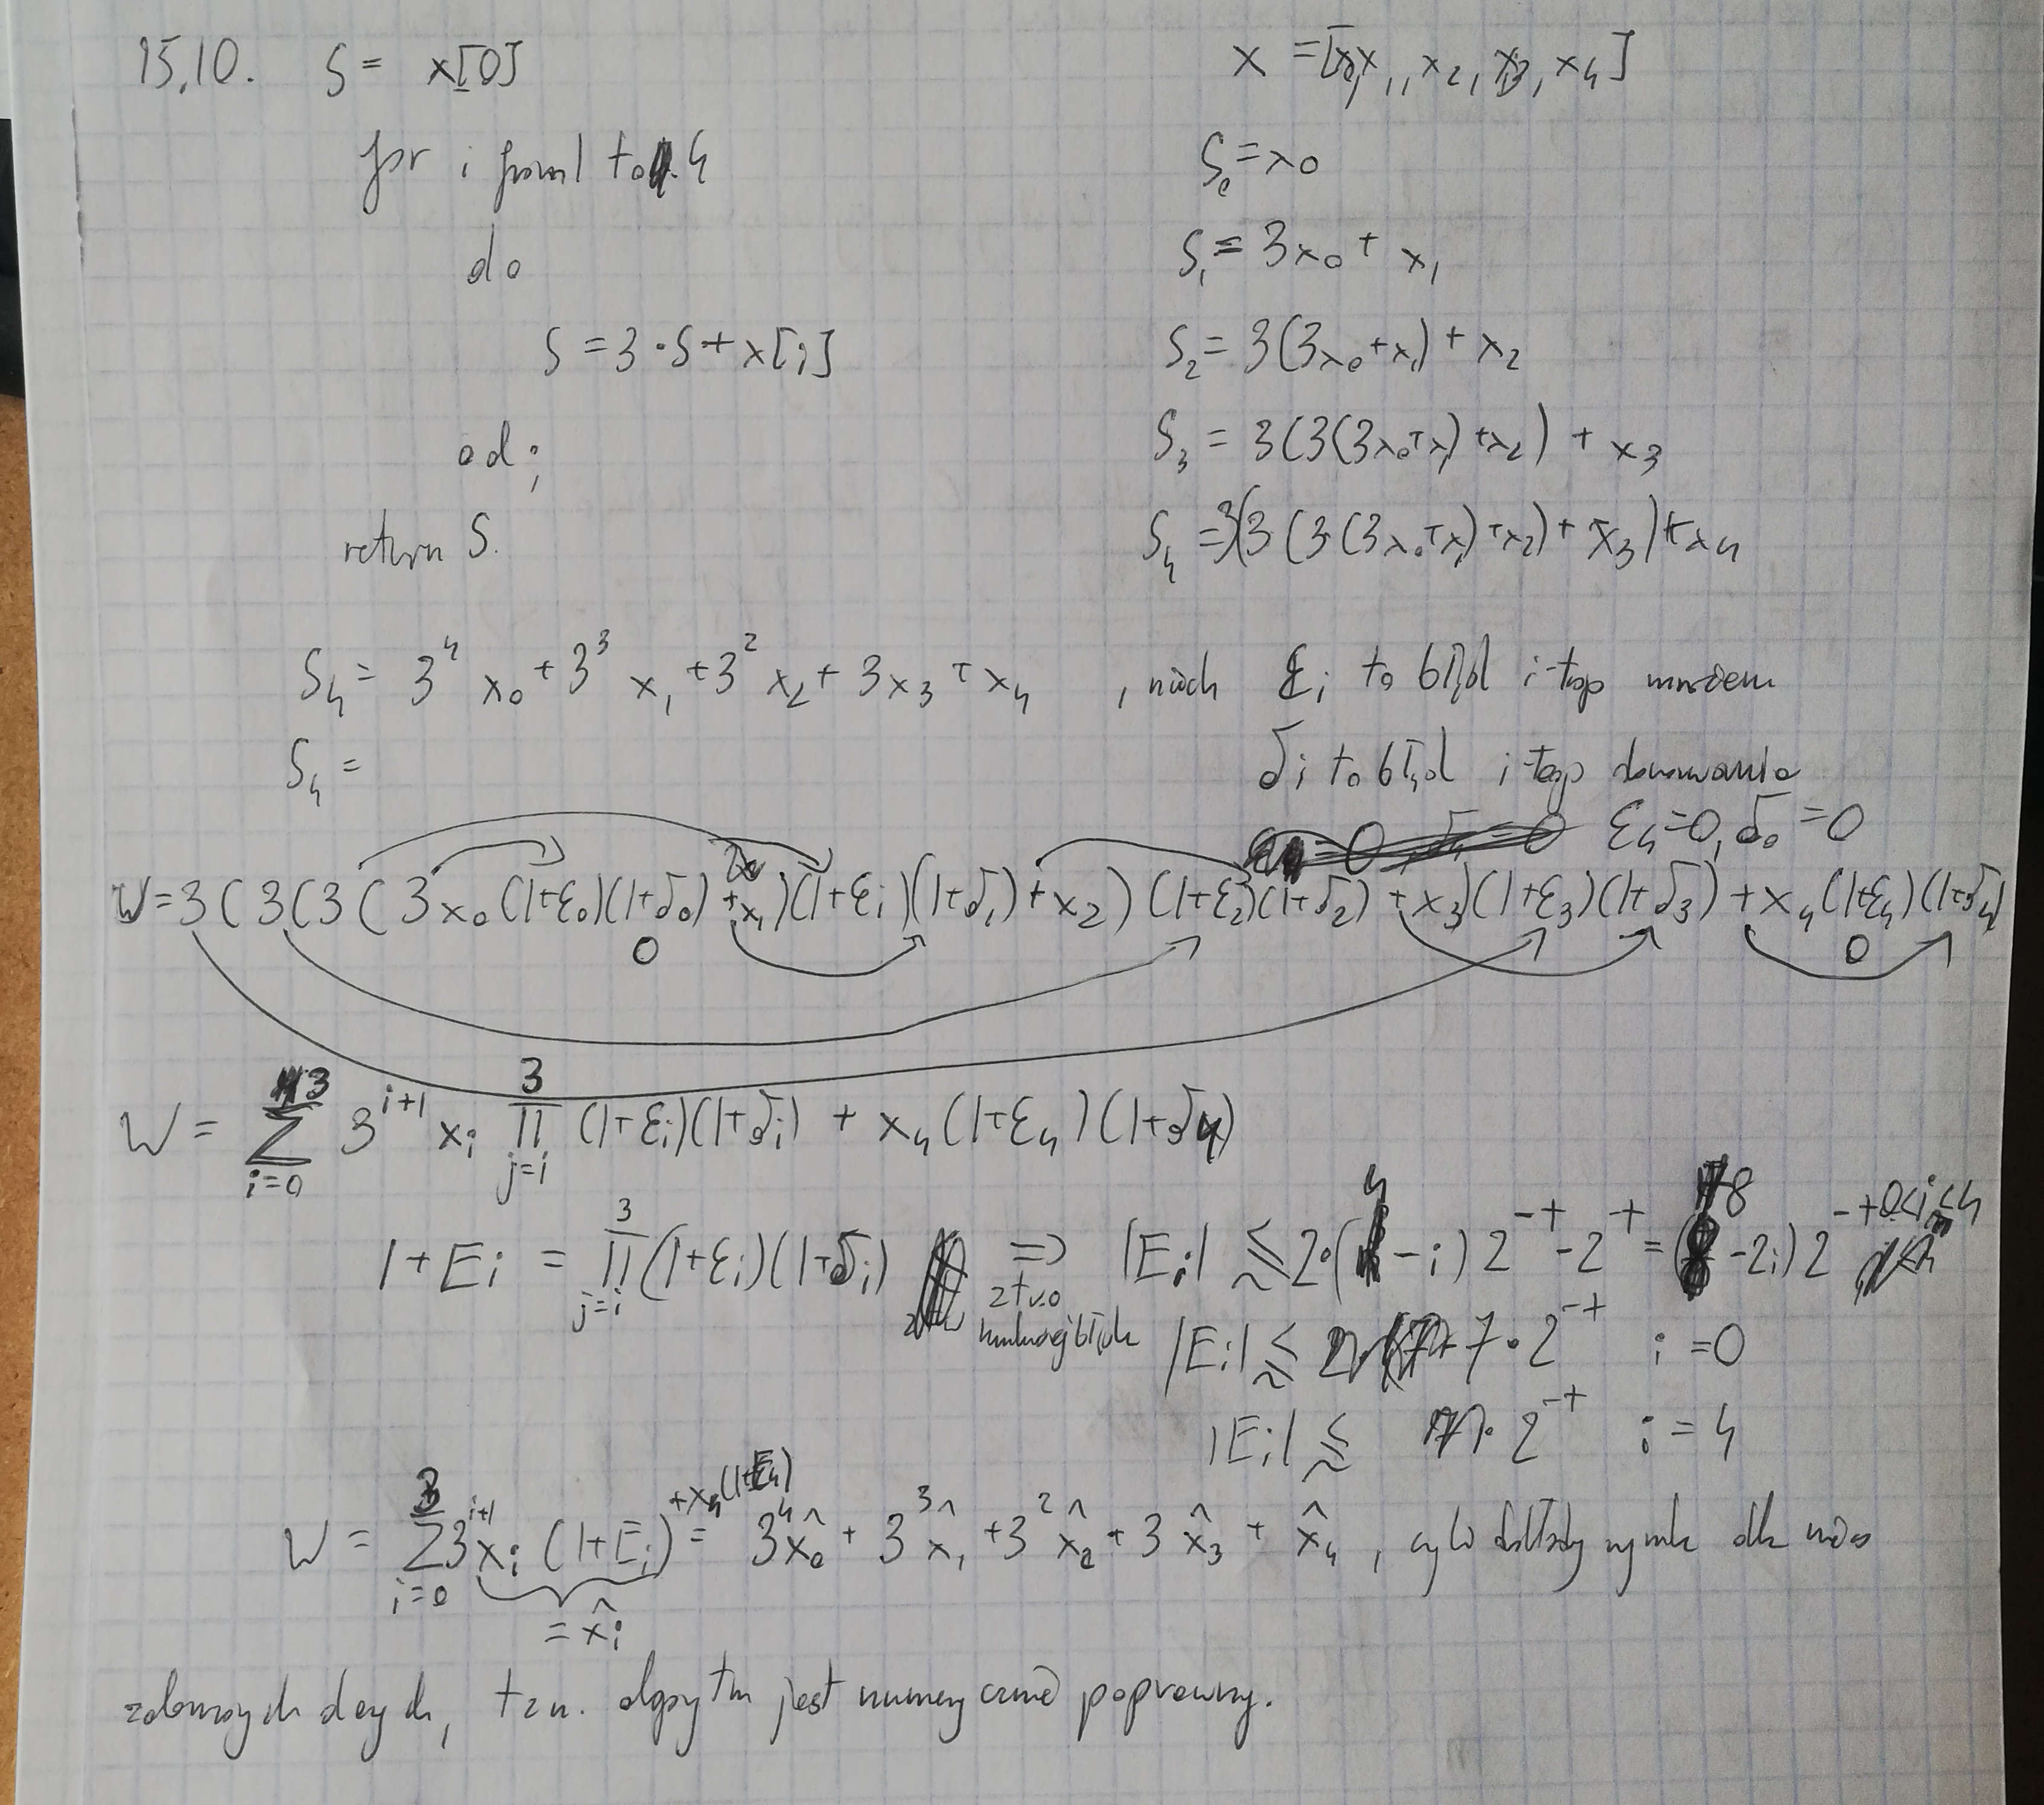 15.10. S = x[0]
for i from 1 to 4
do
S = 3·S + x[i]
od;
return S.
x = [x0, x1, x2, x3, x4]
S₀ = x0
S₁ = 3x0 + x1
S₂ = 3(3x0 + x1) + x2
S₃ = 3(3(3x0 + x1) + x2) + x3
S₄ = 3(3(3(3x0 + x1) + x2) + x3) + x4
S₄ = 3⁴ x0 + 3³ x1 + 3² x2 + 3x3 + x4 , niech εi to błąd i-tego mnożenia
S₄ = δi to błąd i-tego dodawania
ε4 = 0, δ0 = 0
W = 3(3(3(3x0(1+ε0)(1+δ0) + x1)(1+εi)(1+δ1) + x2)(1+ε2)(1+δ2) + x3)(1+ε3)(1+δ3) + x4(1+ε4)(1+δ4)
0 0
W = Σ_{i=0}^{3} 3^{i+1} xi Π_{j=i}^{3} (1+εi)(1+δi) + x4(1+ε4)(1+δ4)
1+Ei = Π_{j=i}^{3} (1+εi)(1+δi) ⇒ |Ei| ≲ 2·(4-i) 2^{-t} - 2^{t} = (8-2i) 2^{-t} 0<i<4
z tw. o kumulacji błędów |Ei| ≲ 7·2^{-t} i = 0
|Ei| ≲ 1·2^{-t} i = 4
W = Σ_{i=0}^{3} 3^{i+1} xi (1+Ei) + x4(1+E4) = 3⁴x̂0 + 3³x̂1 + 3²x̂2 + 3x̂3 + x̂4 , czyli dokładny wynik dla
= x̂i
zaburzonych danych, tzn. algorytm jest numerycznie poprawny.